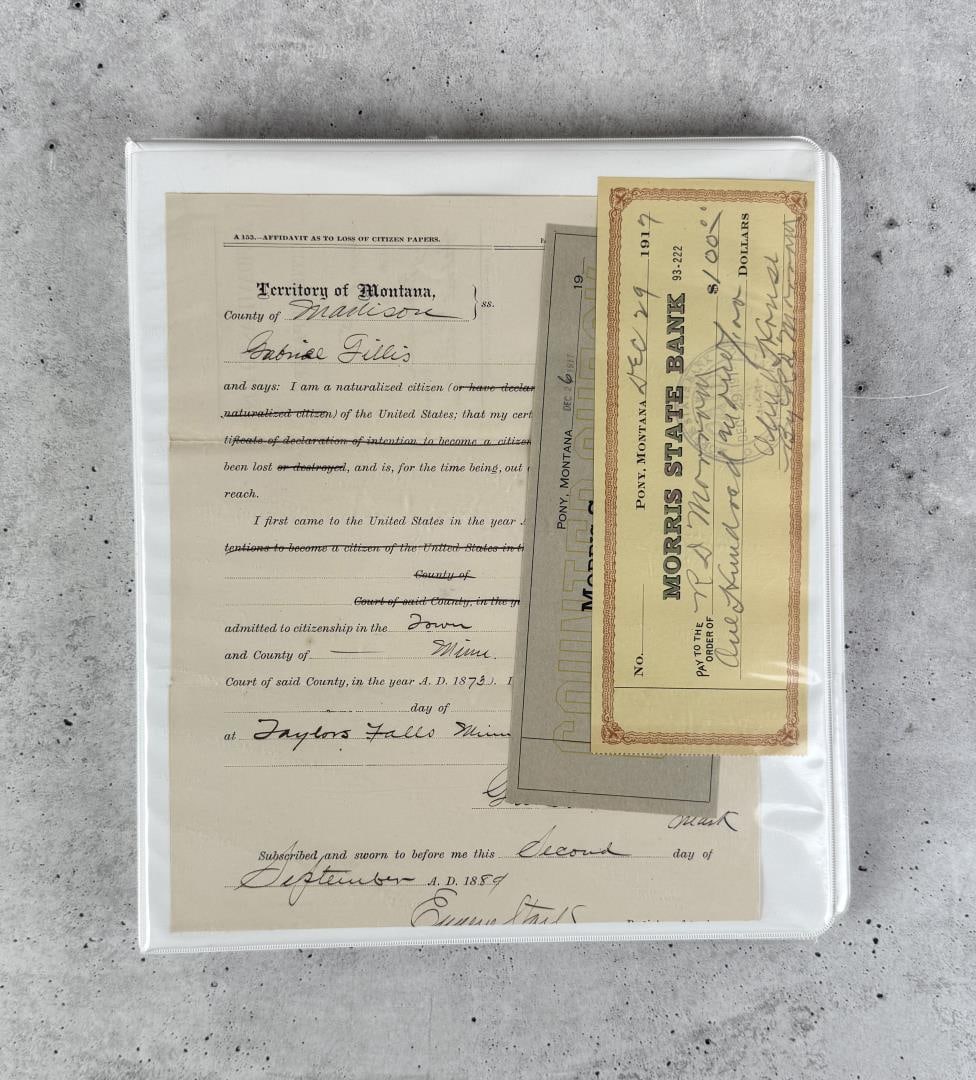 A 153.—AFFIDAVIT AS TO LOSS OF CITIZEN PAPERS.
Territory of Montana,
County of Madison } ss.
Gabriel Gillis
and says: I am a naturalized citizen (or have declar
naturalized citizen) of the United States; that my cert
tificate of declaration of intention to become a citizen
been lost or destroyed, and is, for the time being, out
reach.
I first came to the United States in the year
tentions to become a citizen of the United States in t
County of
Court of said County, in the y
admitted to citizenship in the Town
and County of — Minn.
Court of said County, in the year A. D. 1873). I
day of
at Taylors Falls Minn
mark
Subscribed and sworn to before me this Second day of
September A. D. 1889
Eugene Stark
19
PONY, MONTANA DEC 26 1917
MORRIS S
COUNTER CHECK
No. PONY, MONTANA DEC 29 1917
MORRIS STATE BANK 93-222
PAY TO THE
ORDER OF R D Morrison $100.00
One Hundred and no/100 DOLLARS